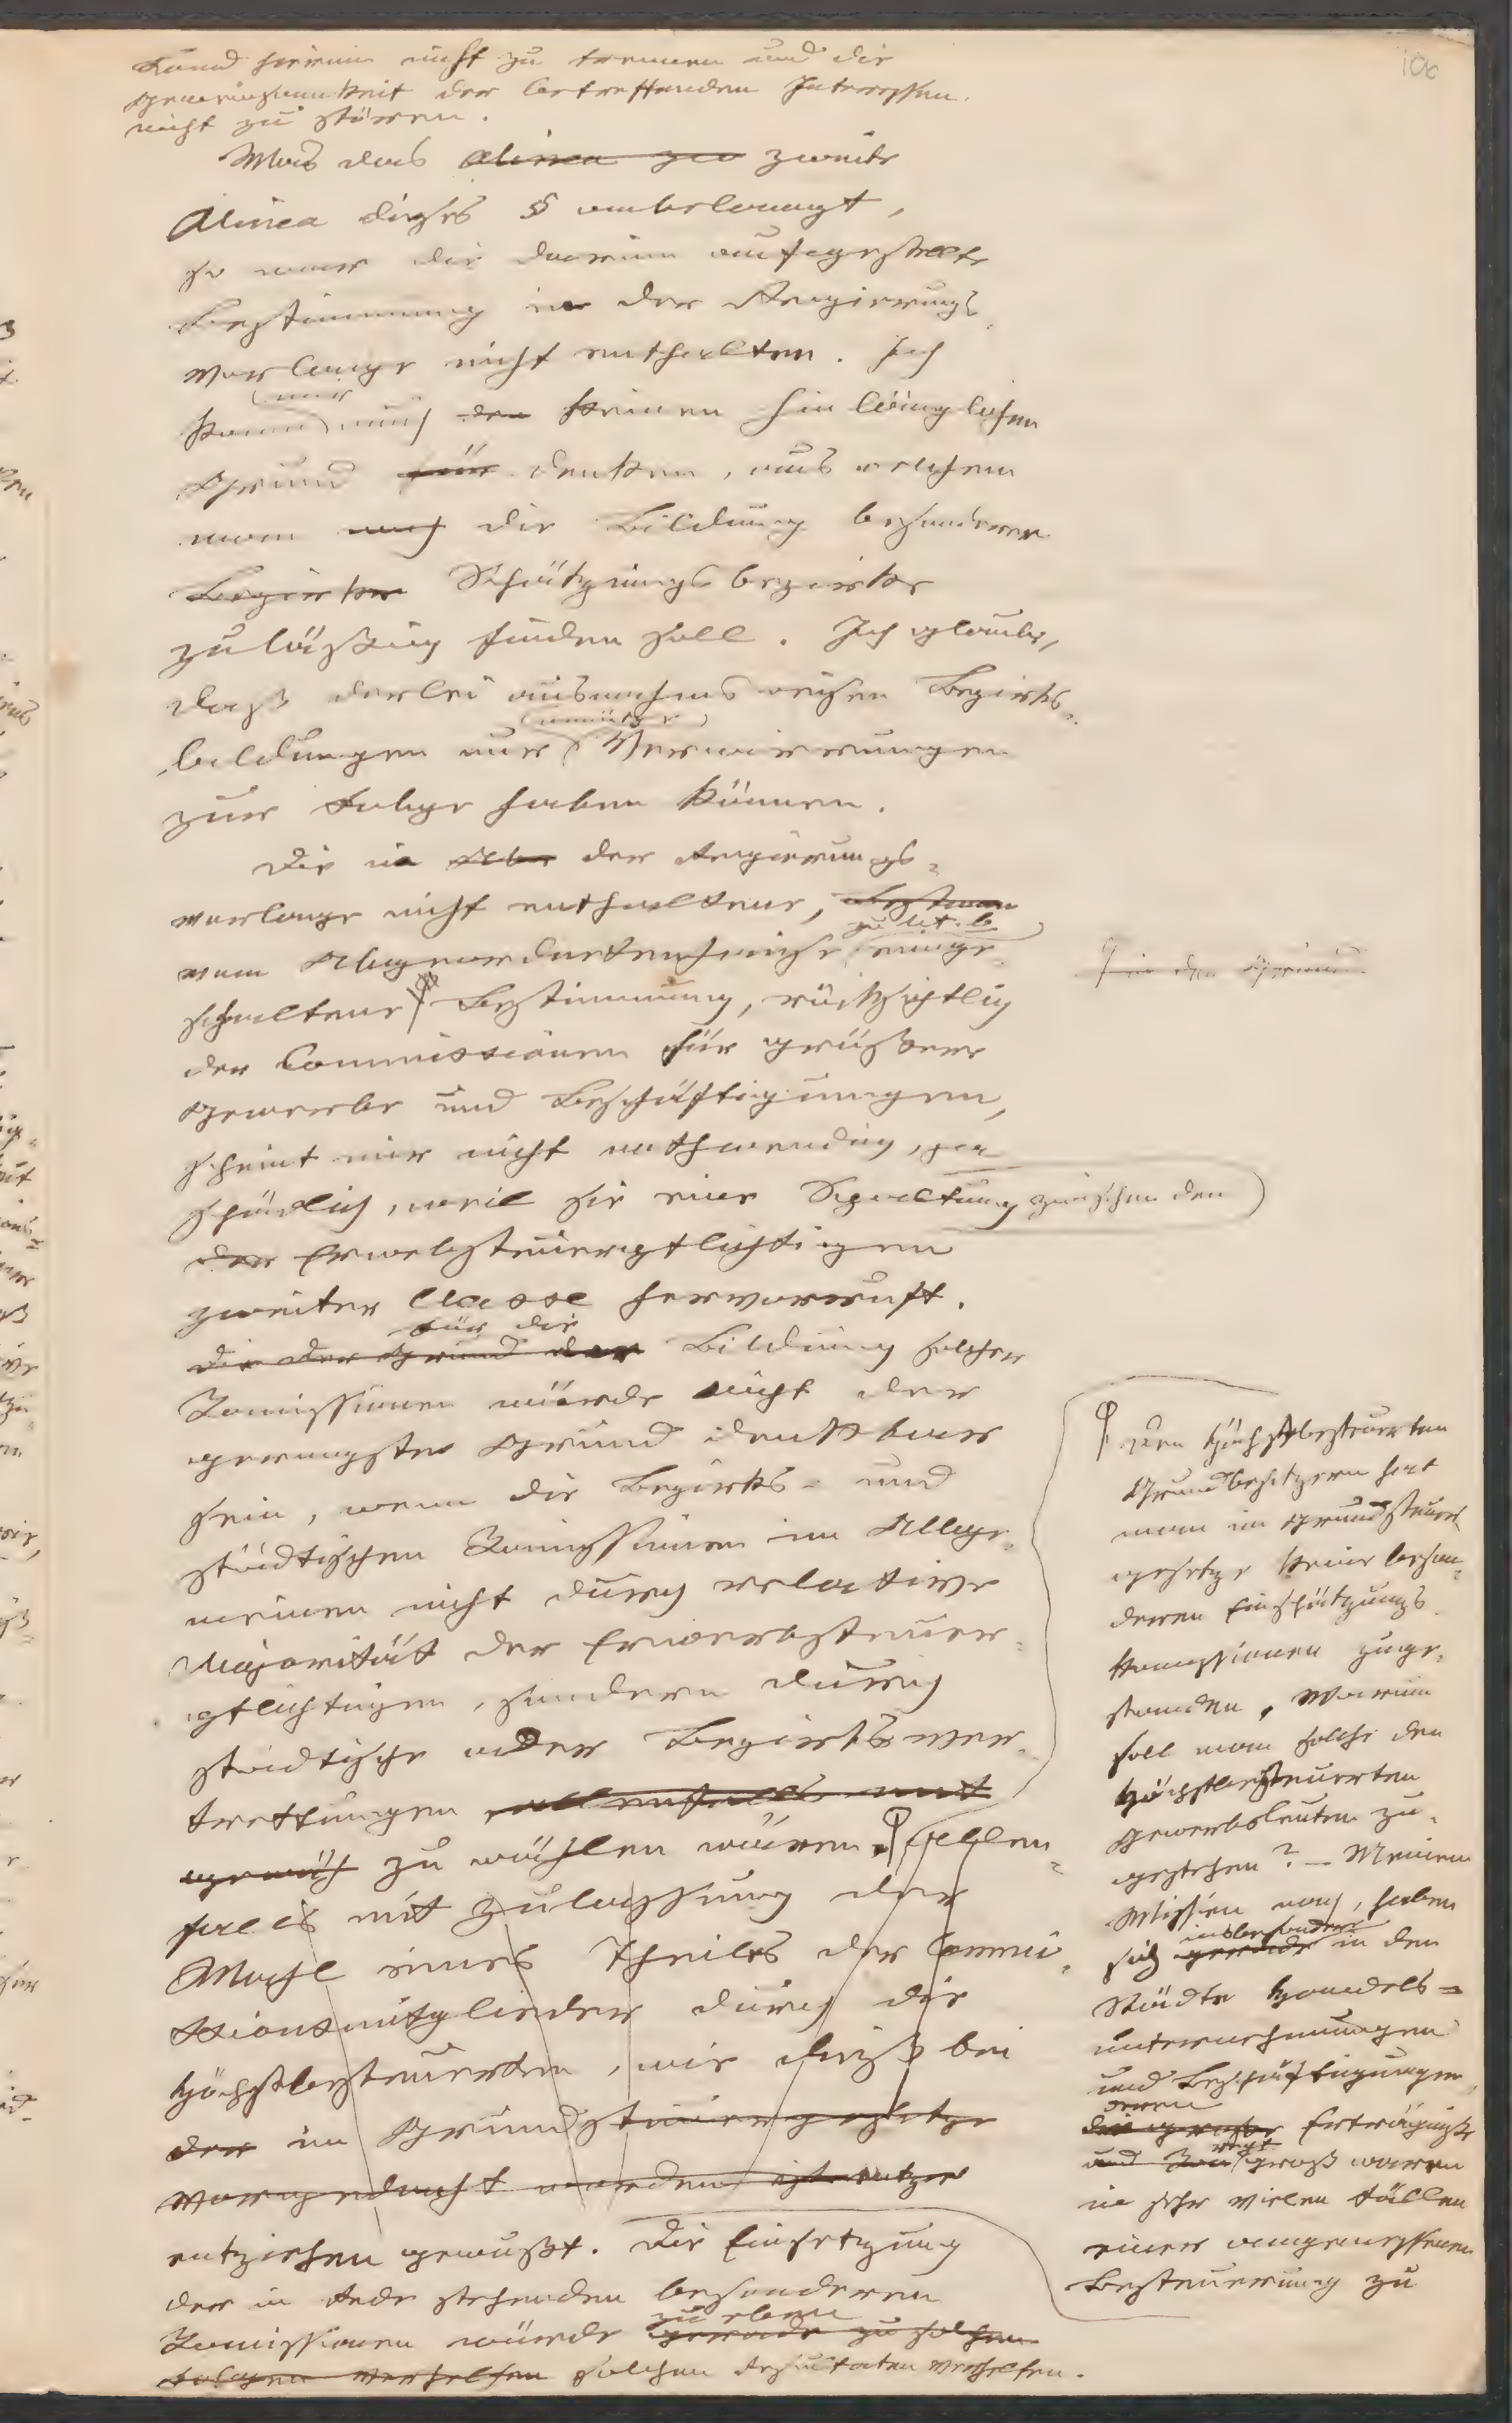 100
Hand hierin nicht zu trennen und die
Gemeinsamkeit der betreffenden Interessen
nicht zu stören.
Was das Alinea zw zweite
Alinea dieses § anbelangt,
so war die darin aufgestellte
Bestimmung in der Regierungs
vorlage nicht enthalten. Ich
nur
kann mich den keinen hinlänglichen
Grund für denken, aus welchem
man auch die Bildung besonderer
Bezirke Schätzungsbezirke
zuläßig finden soll. Ich glaube,
daß derlei ausnahmsweisen Bezirks-
unnütze
bildungen nur Verwirrungen
zur Folge haben können.
Die in Abs der Regierungs-
vorlage nicht enthaltene, Bestimm
zu lit. b
vom Abgeordnetenhause einge-
schaltene Bestimmung, rücksichtlich
der Commissionen für größere
Gewerbe und Beschäftigungen,
scheint mir nicht nothwendig, ja
schädlich, weil sie eine Spaltung zwischen den
der Erwerbsteuerpflichtigen
zweiter Classe hervorruft.
Für die
Die der Grund der Bildung solcher
Komissionen würde nicht der
geringste Grund denkbar
sein, wenn die Bezirks- und
städtischen Komissionen im Allge-
meinen nicht durch relative
Majorität der Erwerbsteuer-
pflichtigen, sondern durch
städtische oder Bezirksver-
trettungen allenfalls mit
gemäß zu wählen wären. Allen-
falls mit Zulassung der
Wahl eines Theiles der Commis-
sionsmitglieder durch die
Höchstbesteuerten, wie dieß bei
der im Grundsteuergesetze
vorgedacht worden ist
entziehen gewußt. Die Einsetzung
der in Rede stehenden besonderen
zu eben
Komissionen würde gerade zu solchen
Folgen verhelfen solchen Resultaten verhelfen.
Für den Grund
Den Höchstbesteuerten
Grundbesitzern hat
man im Grundsteuer
gesetze keine beson-
deren Einschätzungs
Komissionen zuge-
standen, warum
soll man solche den
Höchstbesteuerten
Gewerbsleuten zu-
gestehen? – Meinem
Wissen nach, haben
insbesondere
sich gerade in den
Städte Handels-
unternehmungen
und Beschäftigungen,
deren
die große Erträgniße
recht
und groß waren
in sehr vielen Fällen
einer angemessenen
Besteuerung zu